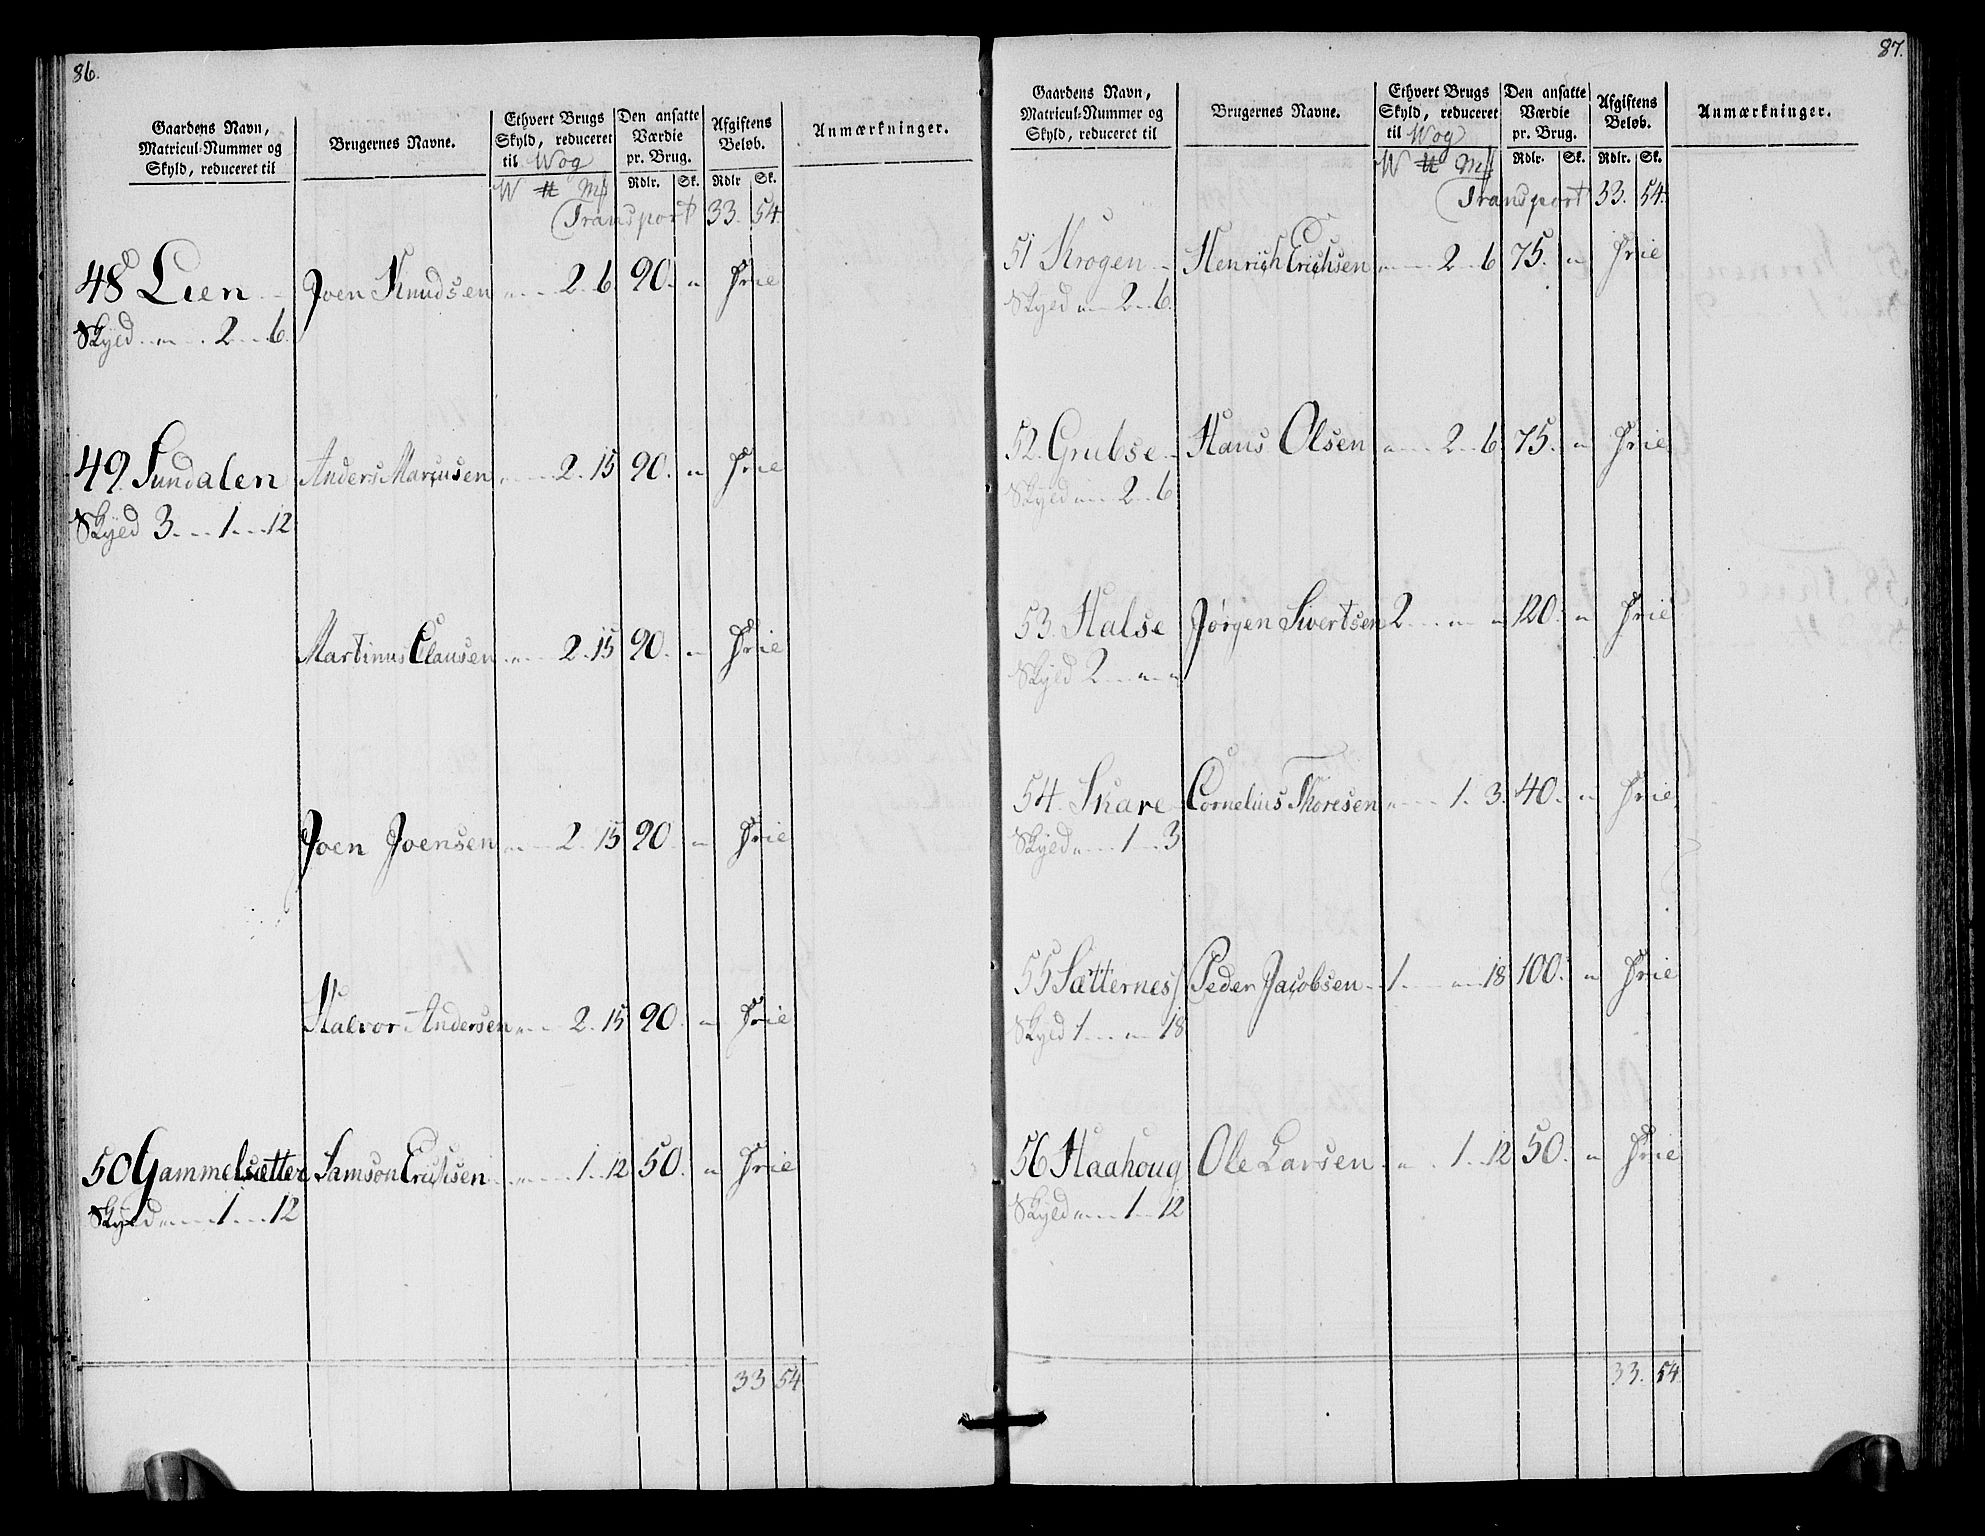 86.
Gaardens Navn, Matricul-Nummer og Skyld, reduceret til
Brugernes Navne.
Ethvert Brugs Skyld, reduceret til Wog
Den ansatte Værdie pr. Brug.
Afgiftens Beløb.
Anmærkninger.
W ℔ Mk Rdlr. Sk. Rdlr Sk.
Transport 33. 54.
48 Lien Joen Knudsen 2 6 90. " Frie
Skyld 2 6.
49 Sundalen Anders Marcusen 2. 15 90. " Frie
Skyld 3. 1 12
Martinus Clausen 2. 15 90. " Frie
Joen Joensen 2. 15 90. " Frie
Halvor Andersen 2. 15 90. " Frie
50 Gammelsætter Samson Erichsen 1 12 50. " Frie
Skyld 1 12
33 54
87.
Gaardens Navn, Matricul-Nummer og Skyld, reduceret til
Brugernes Navne.
Ethvert Brugs Skyld, reduceret til Wog
Den ansatte Værdie pr. Brug.
Afgiftens Beløb.
Anmærkninger.
W ℔ Mk Rdlr. Sk. Rdlr. Sk.
Transport 33. 54.
51 Krogen Henrich Erichsen 2 6 75. " Frie
Skyld " 2 6.
52. Grubse Hans Olsen " 2 6 75. " Frie
Skyld " 2 6
53. Halse Jørgen Sivertsen 2 " " 120. " Frie
Skyld 2 " "
54. Skare Cornelius Thoresen " 1. 3. 40. " Frie
Skyld " 1 3
55 Sætternes Peder Jacobsen 1. " 18 100. " Frie
Skyld 1 " 18
56 Haahoug Ole Larsen " 1. 12 50. " Frie
Skyld " 1 12
33. 54.